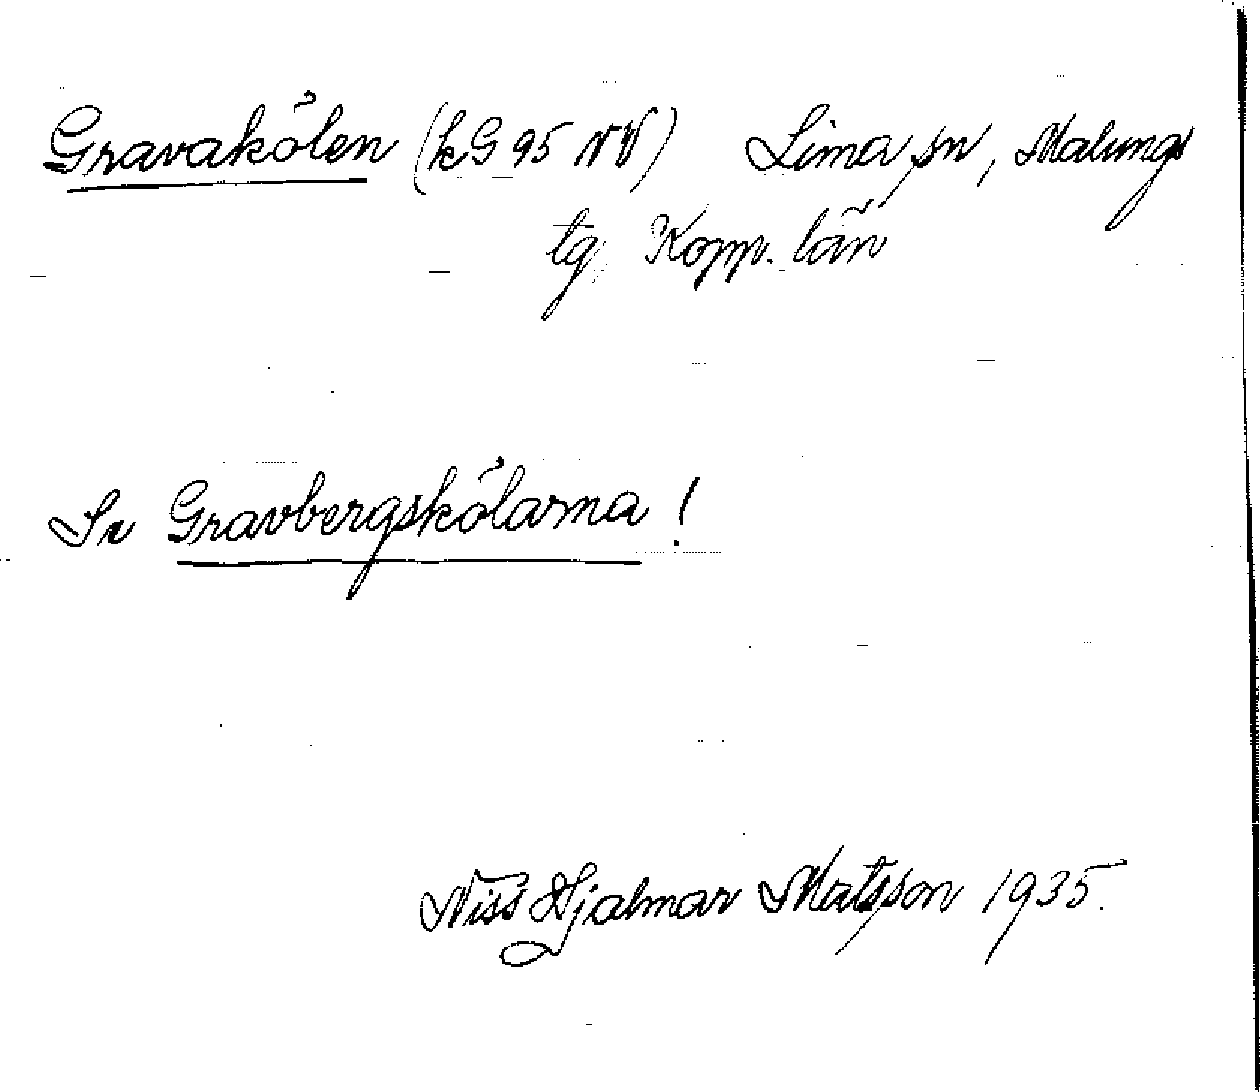 Gravakölen (kG 95 NV) Lima sn, Malungs
tg, Kopp. län
Se Gravbergskölarna!
Niss Hjalmar Matsson 1935.